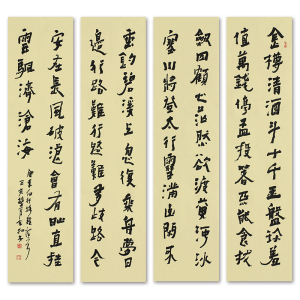 金樽清酒斗十千玉盤珍羞
值萬錢停杯投箸不能食拔
劍四顧心茫然欲渡黃河冰
塞川將登太行雪滿山閑來
垂釣碧溪上忽復乘舟夢日
邊行路難行路難多歧路今
安在長風破浪會有時直挂
雲帆濟滄海